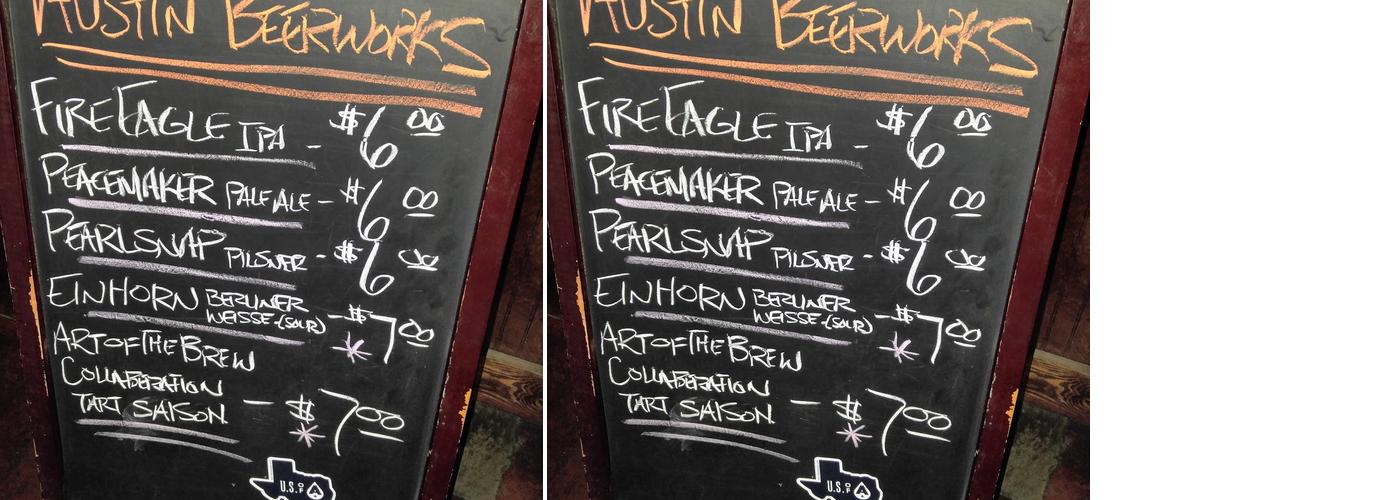 AUSTIN BEERWORKS
FIRE EAGLE IPA - $6.00
PEACEMAKER PALE ALE - $6.00
PEARLSNAP PILSNER - $6.00
EINHORN BERLINER
WEISSE-(SOUR) - $7.00
*
ART OF THE BREW
COLLABERATION
TART SAISON - $7.00
*
U.S. OF
AUSTIN BEERWORKS
FIRE EAGLE IPA - $6.00
PEACEMAKER PALE ALE - $6.00
PEARLSNAP PILSNER - $6.00
EINHORN BERLINER
WEISSE-(SOUR) - $7.00
*
ART OF THE BREW
COLLABERATION
TART SAISON - $7.00
*
U.S. OF